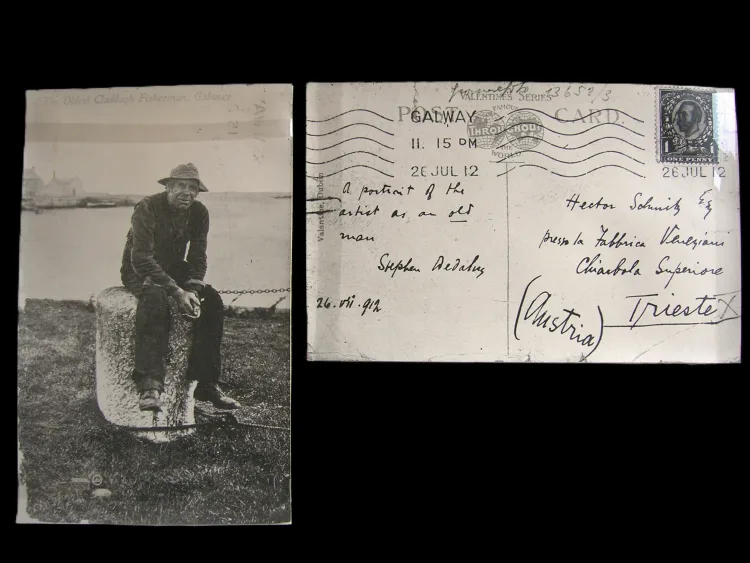 The Oldest Claddagh Fisherman, Galway
13652/3
VALENTINE'S SERIES
POST CARD.
FAMOUS
THROUGHOUT
THE
WORLD
GALWAY
11. 15 PM
26 JUL 12
26 JUL 12
ONE PENNY
Valentine, Dublin
A portrait of the
artist as an old
man
Stephen Dedalus
26. VII. 912
Hector Schmitz Esq
presso la Fabbrica Veneziani
Chiarbola Superiore
Trieste
(Austria)